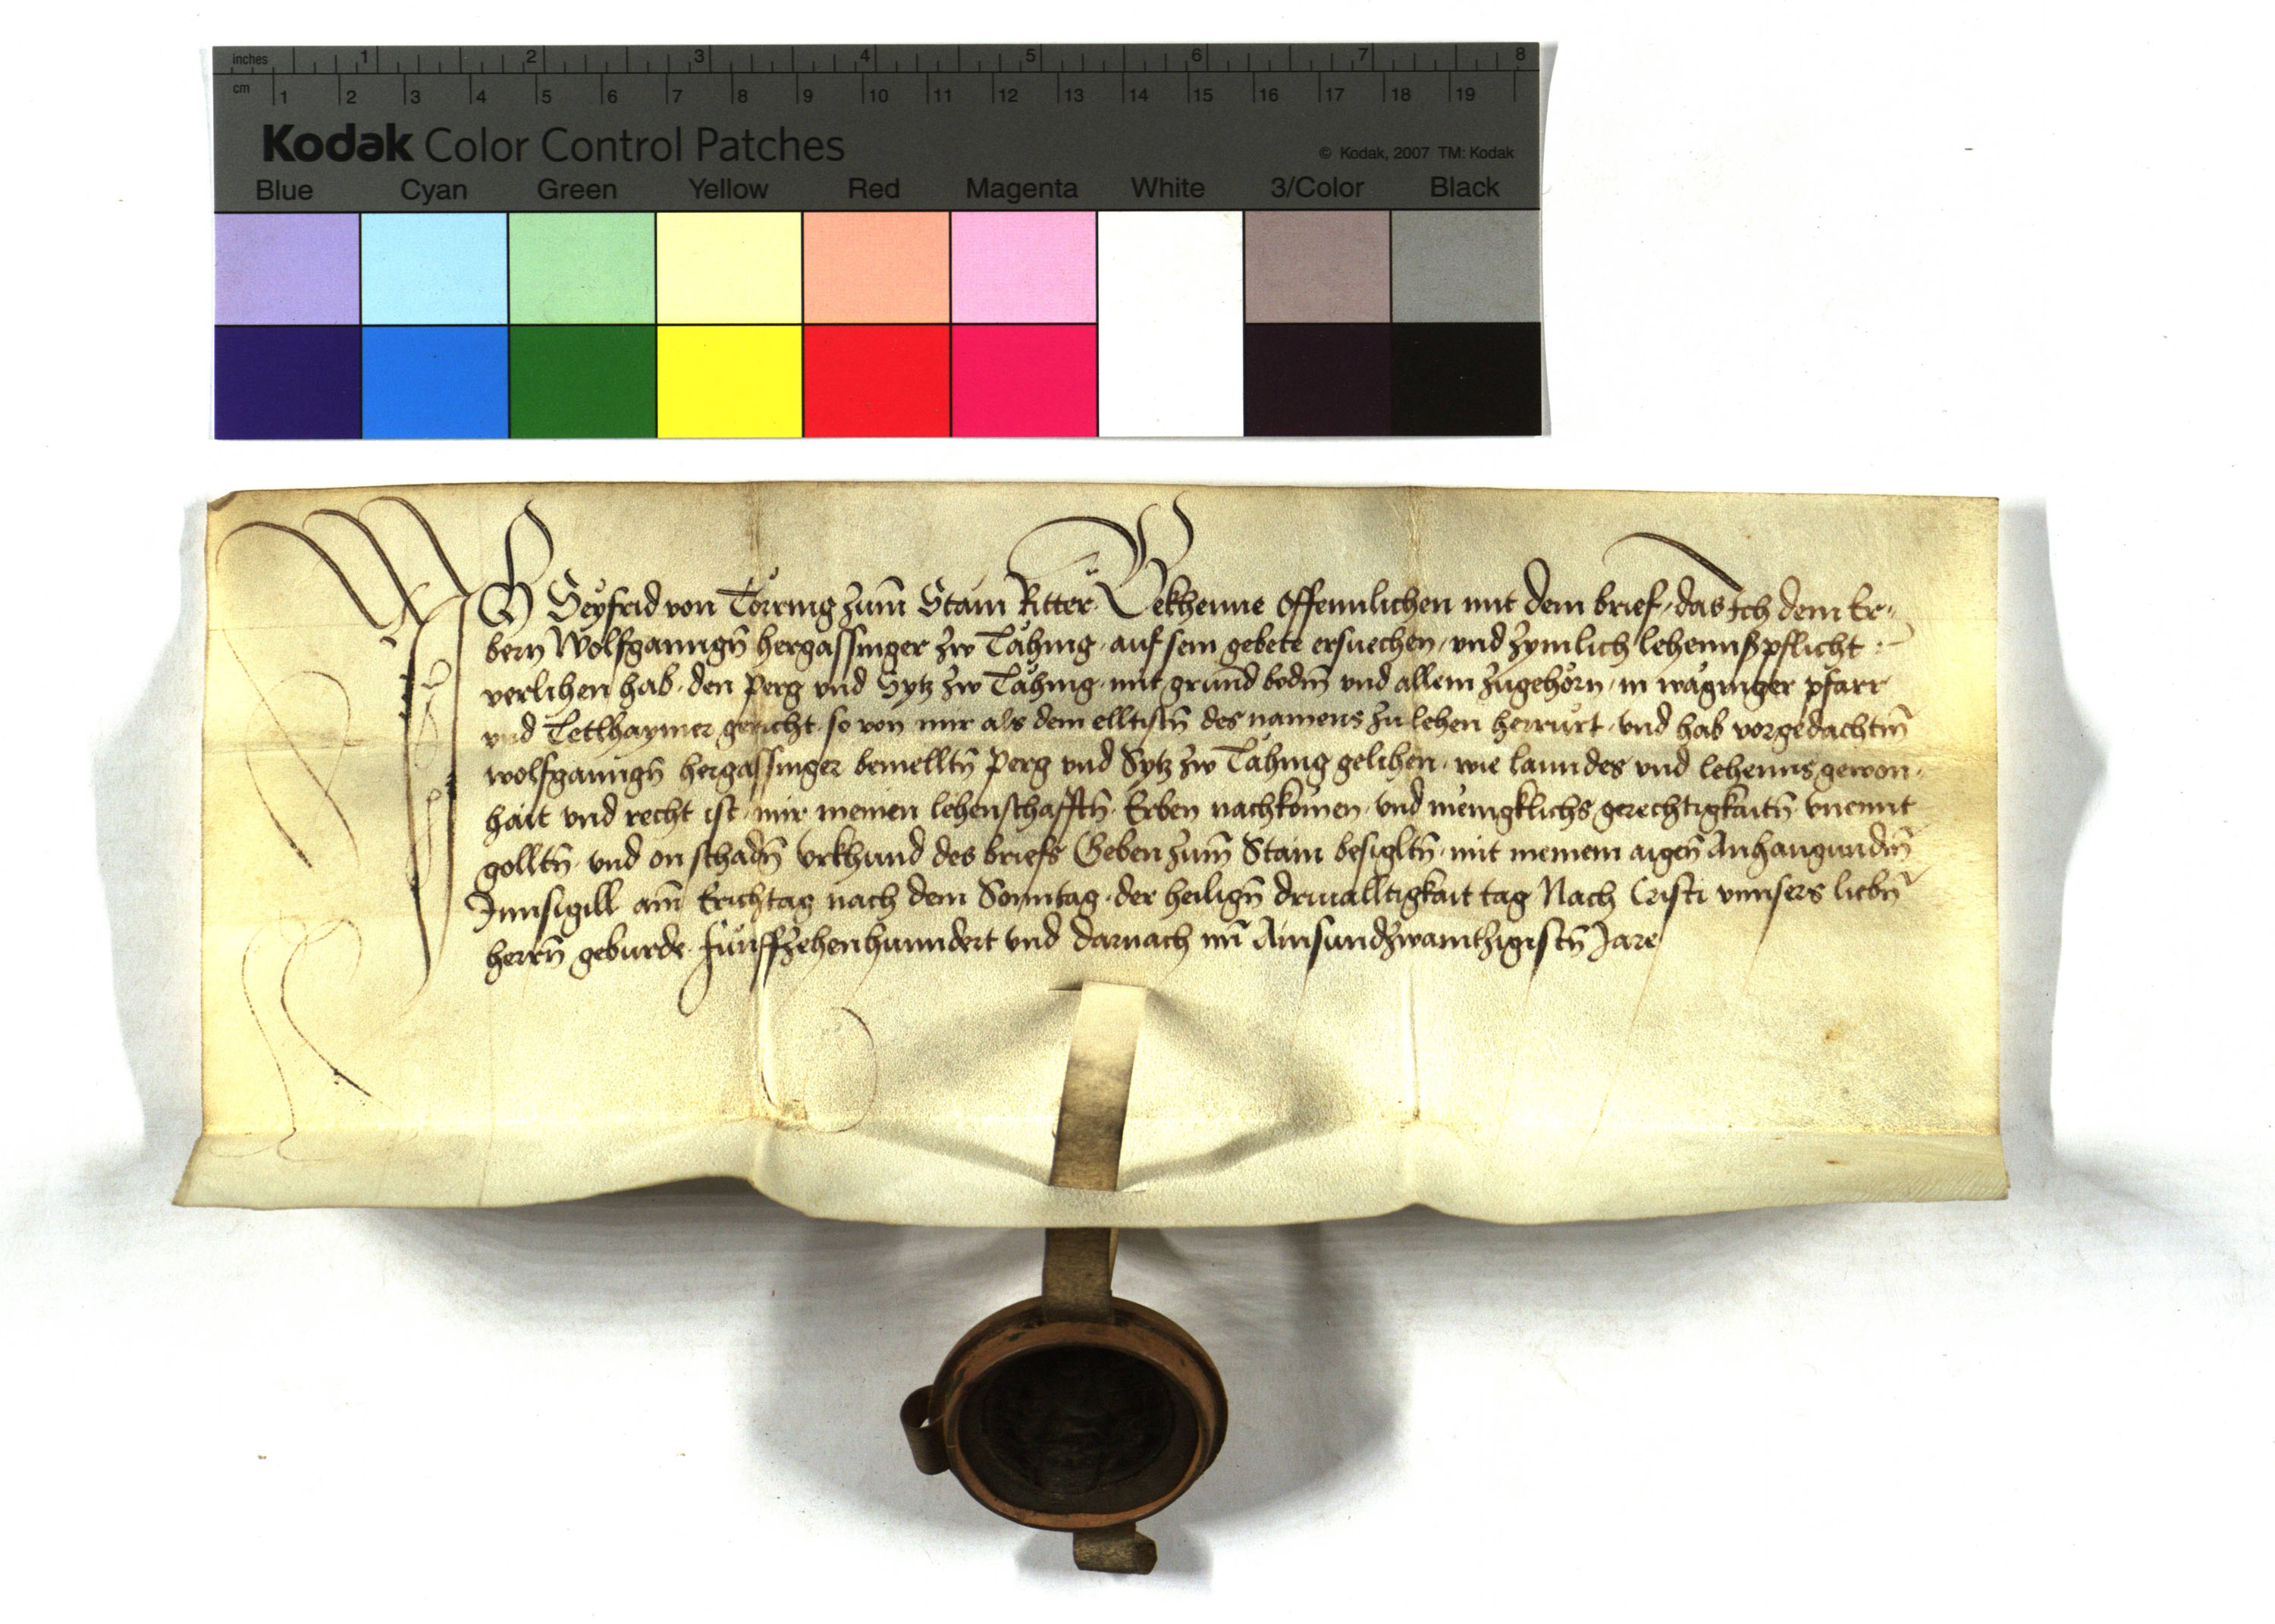 inches 1 2 3 4 5 6 7 8
cm 1 2 3 4 5 6 7 8 9 10 11 12 13 14 15 16 17 18 19
Kodak Color Control Patches
© Kodak, 2007 TM: Kodak
Blue Cyan Green Yellow Red Magenta White 3/Color Black
Ich Seyfrid von Törring zum̄ Stain Ritter Bekhenne offennlichen mit dem brief, das Ich dem Er-
bern Wolfganngn̄ hergassinger zw Tåhing, auf sein gebete ersuechen, und zymlich lehennspflicht
verlihen hab, den Perg vnd Sytz zw Tåhing, mit grund bodm̄ vnd allem zugehörn, in wåginger pfarr
vnd Tetlhaymer gericht, so von mir als dem elltistn̄ des namens zu lehen herrürt, vnd hab vorgedachtm̄
wolfganngn̄ hergassinger bemelltn̄ Perg vnd Sytz zw Tåhing gelihen, wie lanndes vnd lehenns gewon-
hait vnd recht ist, mir meinen lehenschafftn̄ Erben nachkomen, vnd menigklichs gerechtigkaitn̄ vnennt
golltn̄, vnd on schadn̄ vrkhund des briefs Geben zum̄ Stain besigltn̄, mit meinem aigen̄ Anhangundm̄
Innsigill am̄ Erichtag nach dem Sonntag, der heilign̄ driualltigkait tag Nach Cristi vnnsers liebn̄
herrn̄ geburde, fünffzehenhunndert vnd darnach im̄ Ainsundzwaintzigistn̄ Jare